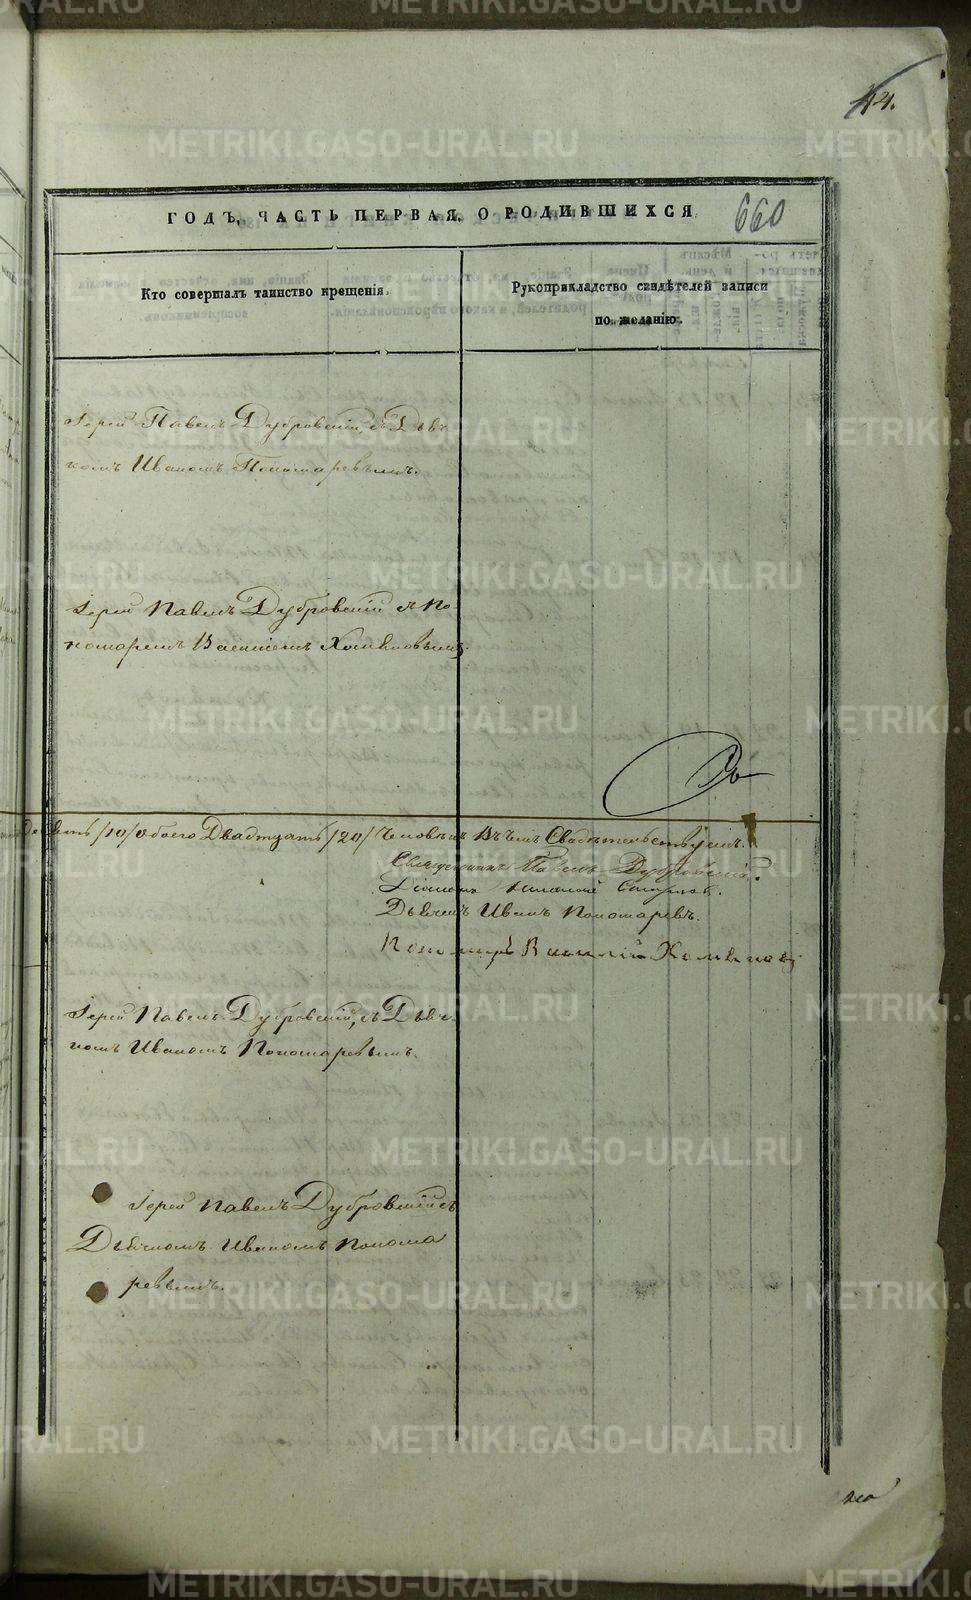 44.
ГОДЪ, ЧАСТЬ ПЕРВАЯ, О РОДИВШИХСЯ
660
Кто совершалъ таинство крещенія.
Рукоприкладство свидѣтелей записи
по желанію.
Іерей Павелъ Дубровскій, съ Дьяч-
комъ Иваномъ Пономаревымъ.
Іерей Павелъ Дубровскій съ По
номаремъ Василіемъ Хомяковымъ.
/10/ Обоего Двадцать /20/ Человѣкъ Въ чемъ Свидѣтельствуемъ.
Священникъ Павелъ Дубровскій.
Діаконъ
Дьячекъ Иванъ Пономаревъ.
Пономарь Василій Хомяковъ
Іерей Павелъ Дубровскій, съ Дьяч-
комъ Иваномъ Пономаревымъ.
Іерей Павелъ Дубровскій съ
Дьячкомъ Иваномъ Понома
ревымъ.
METRIKI.GASO-URAL.RU